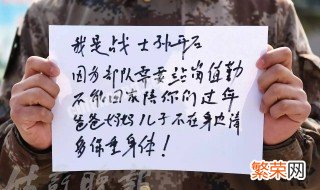 我是战士孙开石
因为部队需要站岗值勤
不能回家陪你们过年
爸爸妈妈儿子不在身边请
多保重身体！
繁荣网